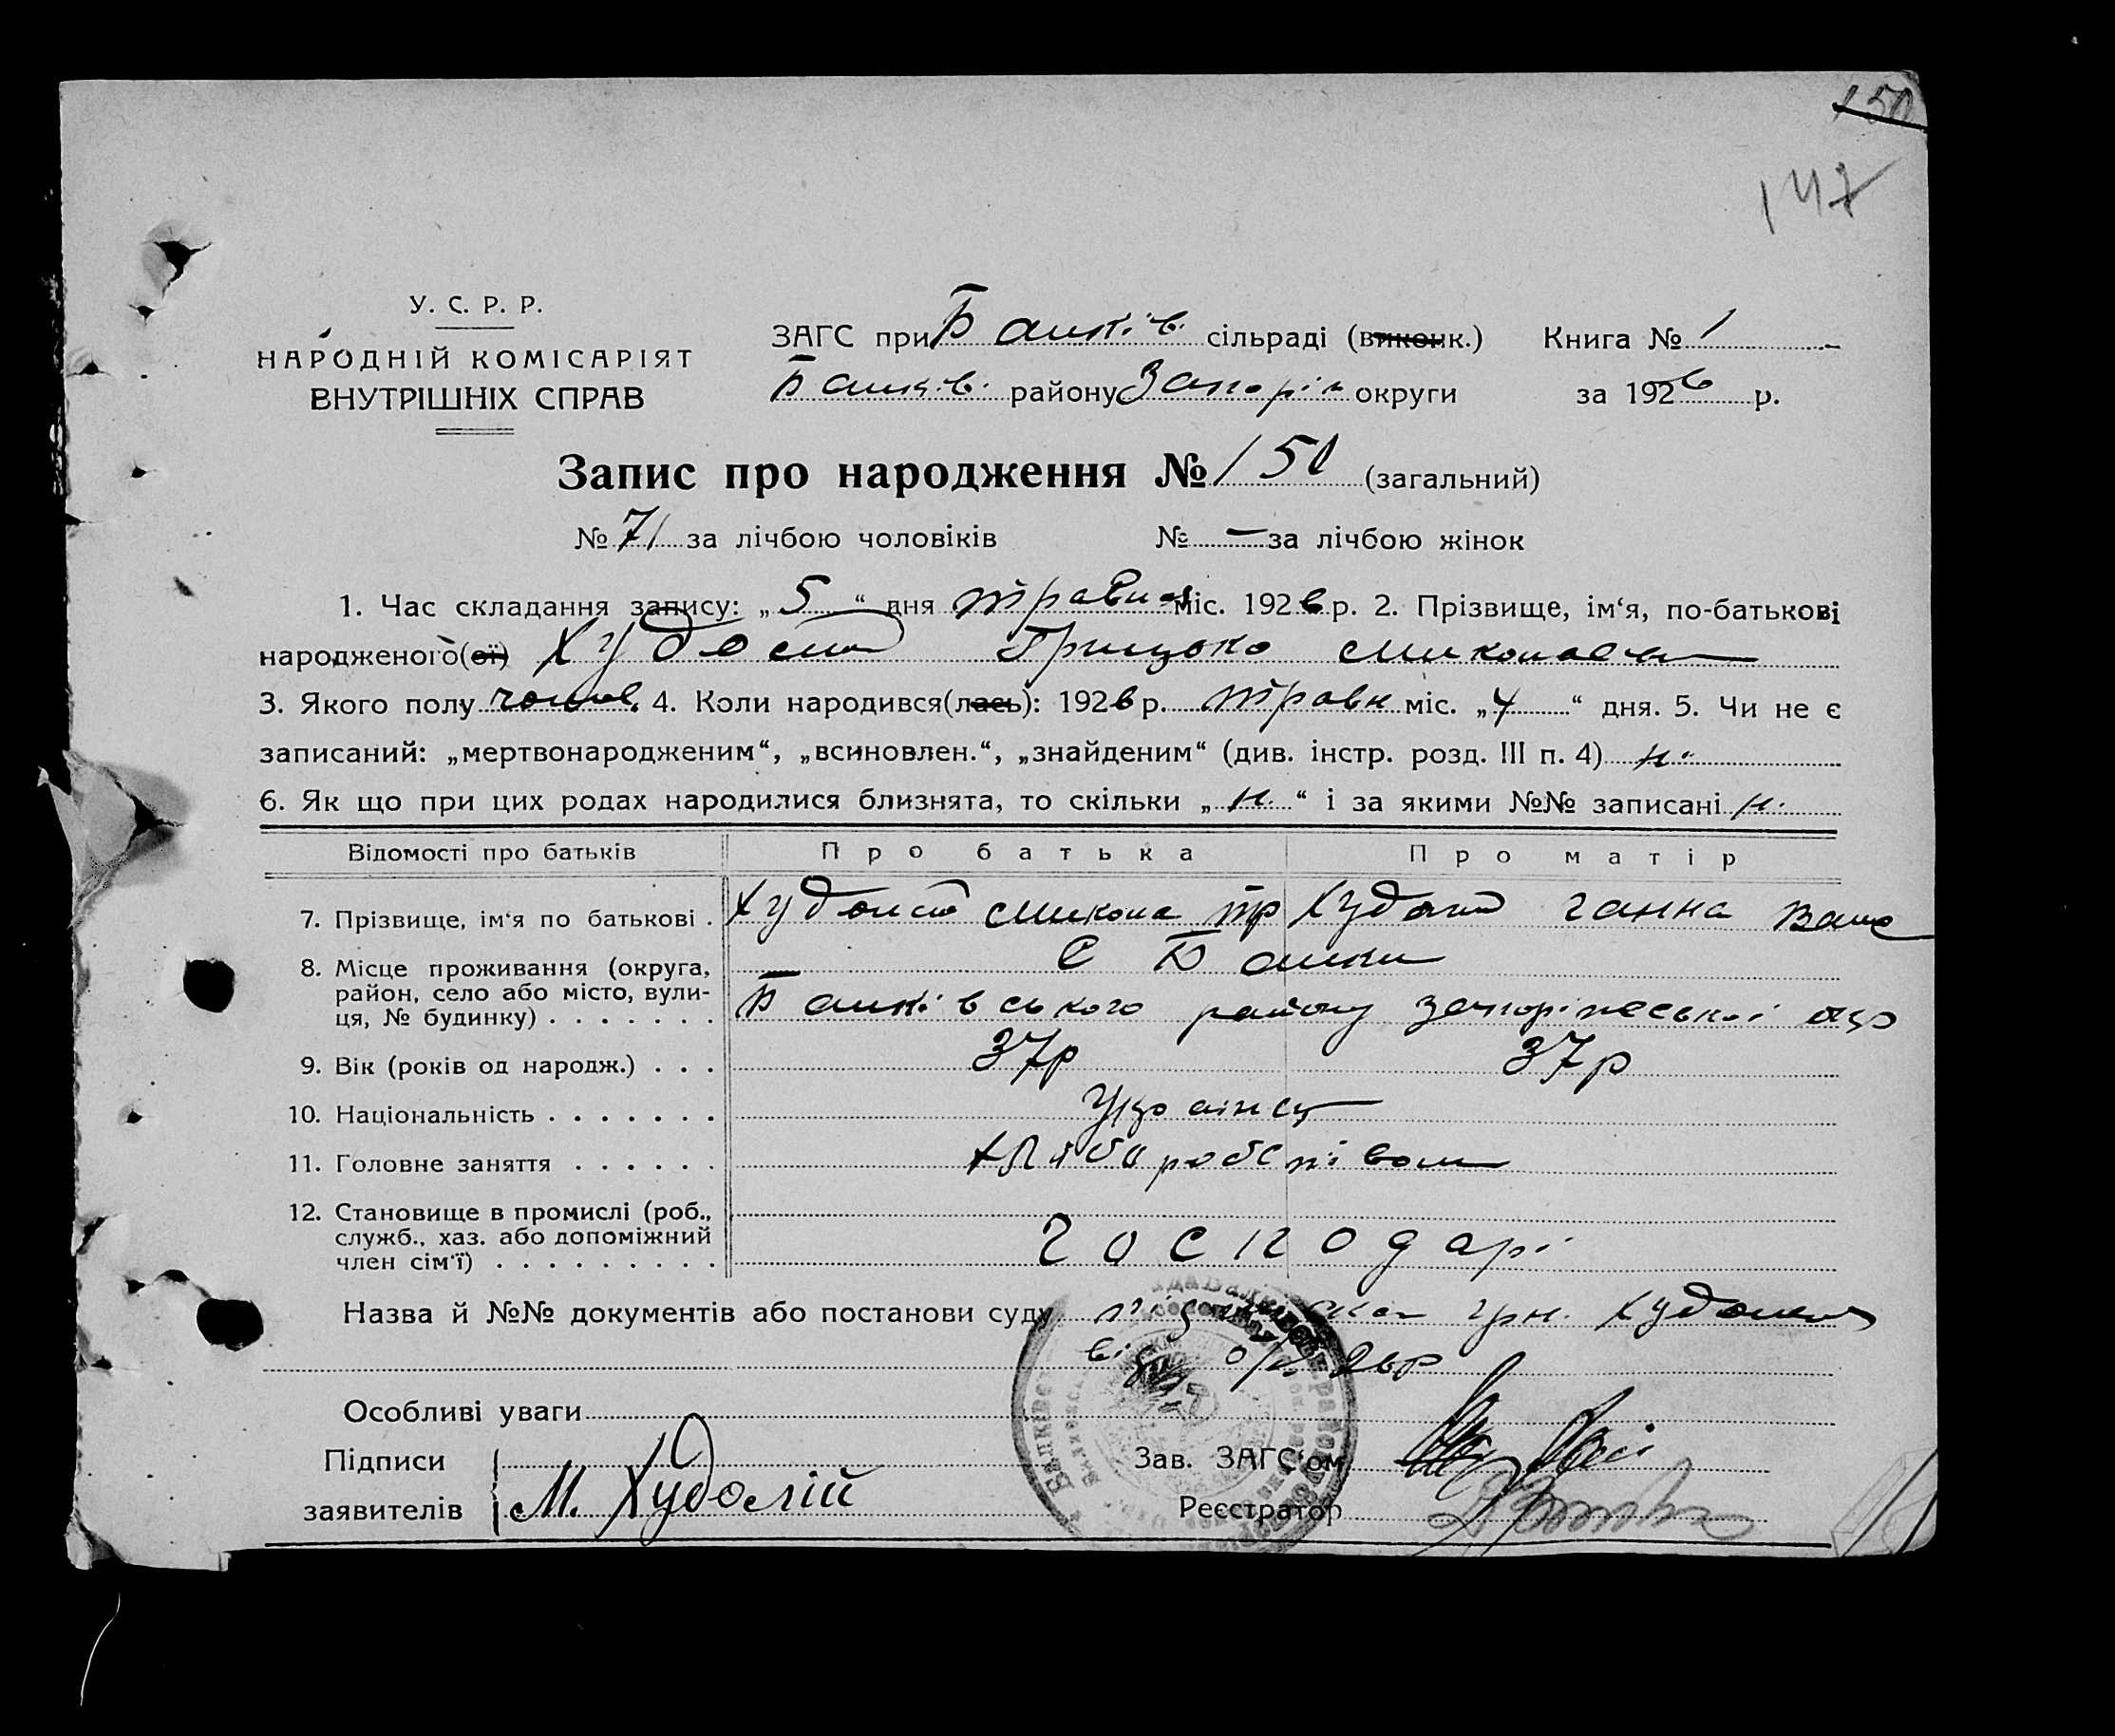 150
147
У. С. Р. Р.
НАРОДНІЙ КОМІСАРІЯТ
ВНУТРІШНІХ СПРАВ
ЗАГС при Балків. сільраді (виконк.) Книга № 1
Балків. району Запоріж округи за 1926 р.
Запис про народження № 150 (загальний)
№ 71 за лічбою чоловіків № – за лічбою жінок
1. Час складання запису: „5“ дня травня міс. 1926 р. 2. Прізвище, ім‘я, по-батькові
народженого(ої) Худолій Грицько Миколаєв
3. Якого полу чолов. 4. Коли народився(лась): 1926 р. травн міс. „4“ дня. 5. Чи не є
записаний: „мертвонародженим“, „всиновлен.“, „знайденим“ (див. інстр. розд. III п. 4) н.
6. Як що при цих родах народилися близнята, то скільки „н.“ і за якими №№ записані н.
Відомості про батьків Про батька Про матір
7. Прізвище, ім‘я по батькові . Худолій Микола Худолій Ганна
8. Місце проживання (округа, С Балки
район, село або місто, вули- Балківського району Запоріжської окр
ця, № будинку) . . . . . . .
9. Вік (років од народж.) . . . 37р 37р
10. Національність . . . . . . . Українці
11. Головне заняття . . . . . .
12. Становище в промислі (роб.,
служб., хаз. або допоміжний господарі
член сім‘ї) . . . . . . . . .
Назва й №№ документів або постанови суду грн. Худолія
від 26р
Особливі уваги
Підписи Зав. ЗАГС‘ом
заявителів М. Худолій Реєстратор